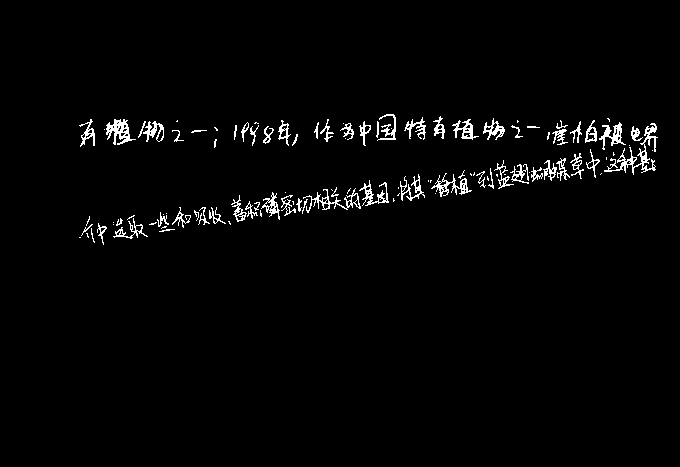 有植物之一；1998年，作为中国特有植物之一，崖柏被世界
介中选取一些和吸收、蓄积磷密切相关的基因，将其“移植”到蓝翅蝴蝶草中，这种基